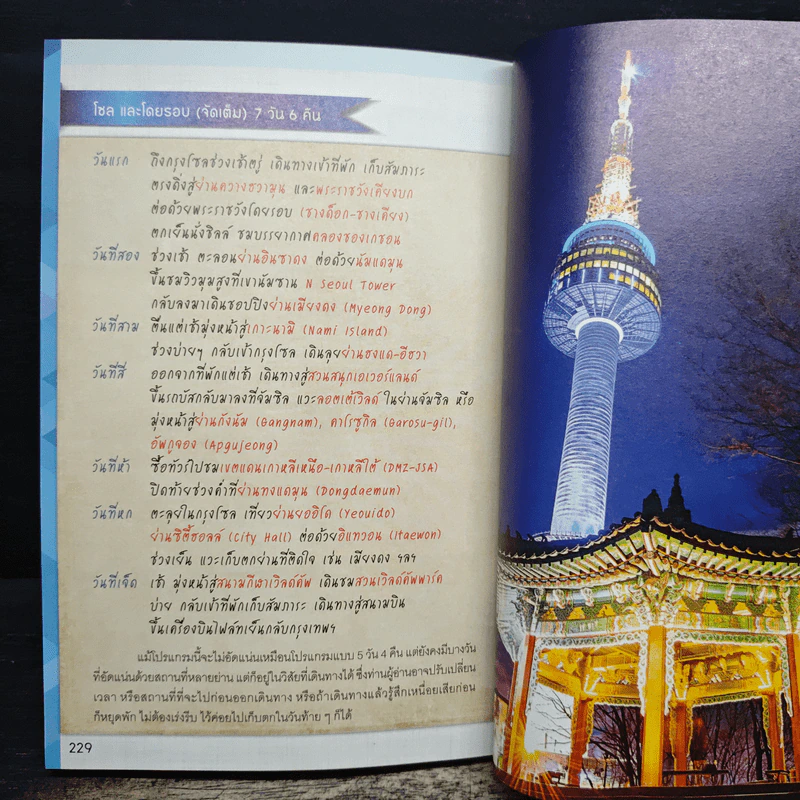 โซล และโดยรอบ (จัดเต็ม) 7 วัน 6 คืน
วันแรก ถึงกรุงโซลช่วงเช้าตรู่ เดินทางเข้าที่พัก เก็บสัมภาระ
ตรงดิ่งสู่ย่านควางฮวามุน และพระราชวังเคียงบก
ต่อด้วยพระราชวังโดยรอบ (ชางด็อก-ชางเคียง)
ตกเย็นนั่งชิลล์ ชมบรรยากาศคลองชองเกชอน
วันที่สอง ช่วงเช้า ตะลอนย่านอินซาดง ต่อด้วยนัมแดมุน
ขึ้นชมวิวมุมสูงที่เขานัมซาน N Seoul Tower
กลับลงมาเดินชอปปิงย่านเมียงดง (Myeong Dong)
วันที่สาม ตื่นแต่เช้ามุ่งหน้าสู่เกาะนามิ (Nami Island)
ช่วงบ่ายๆ กลับเข้ากรุงโซล เดินลุยย่านฮงแด-อีฮวา
วันที่สี่ ออกจากที่พักแต่เช้า เดินทางสู่สวนสนุกเอเวอร์แลนด์
ขึ้นรถบัสกลับมาลงที่จัมซิล แวะลอตเต้เวิลด์ ในย่านจัมซิล หรือ
มุ่งหน้าสู่ย่านกังนัม (Gangnam), คาโรซูกิล (Garosu-gil),
อัพกูจอง (Apgujeong)
วันที่ห้า ซื้อทัวร์ไปชมเขตแดนเกาหลีเหนือ-เกาหลีใต้ (DMZ-JSA)
ปิดท้ายช่วงค่ำที่ย่านทงแดมุน (Dongdaemun)
วันที่หก ตะลุยในกรุงโซล เที่ยวย่านยออิโด (Yeouido)
ย่านซิตี้ฮอลล์ (City Hall) ต่อด้วยอิแทวอน (Itaewon)
ช่วงเย็น แวะเก็บตกย่านที่ติดใจ เช่น เมียงดง ฯลฯ
วันที่เจ็ด เช้า มุ่งหน้าสู่สนามกีฬาเวิลด์คัพ เดินชมสวนเวิลด์คัพพาร์ค
บ่าย กลับเข้าที่พักเก็บสัมภาระ เดินทางสู่สนามบิน
ขึ้นเครื่องบินไฟล์ทเย็นกลับกรุงเทพฯ
แม้โปรแกรมนี้จะไม่อัดแน่นเหมือนโปรแกรมแบบ 5 วัน 4 คืน แต่ยังคงมีบางวัน
ที่อัดแน่นด้วยสถานที่หลายย่าน แต่ก็อยู่ในวิสัยที่เดินทางได้ ซึ่งท่านผู้อ่านอาจปรับเปลี่ยน
เวลา หรือสถานที่ที่จะไปก่อนออกเดินทาง หรือถ้าเดินทางแล้วรู้สึกเหนื่อยเสียก่อน
ก็หยุดพัก ไม่ต้องเร่งรีบ ไว้ค่อยไปเก็บตกในวันท้าย ๆ ก็ได้
229